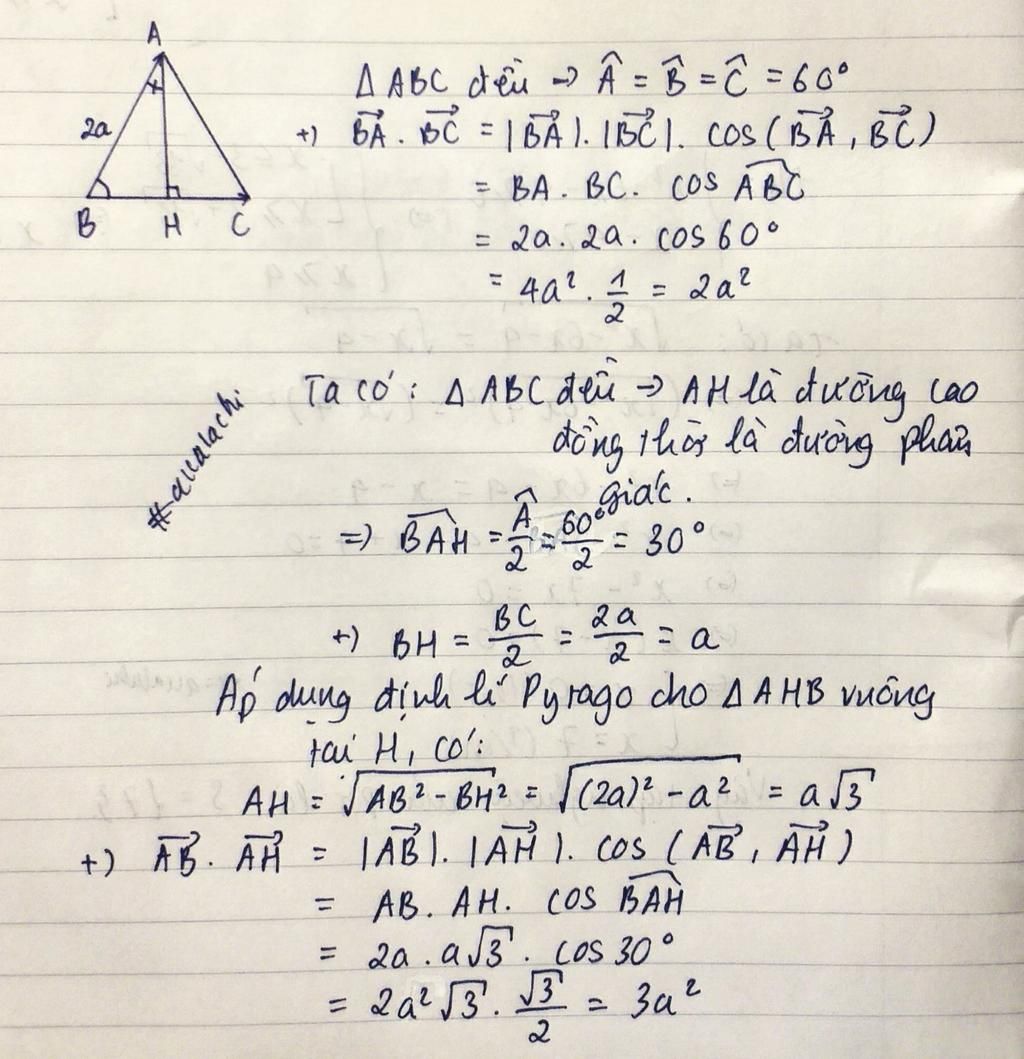 A
2a
B H C
Δ ABC đều → Â = B̂ = Ĉ = 60°
+) \overrightarrow{BA} . \overrightarrow{BC} = |\overrightarrow{BA}| . |\overrightarrow{BC}| . cos(\overrightarrow{BA} , \overrightarrow{BC})
= BA . BC . cos \widehat{ABC}
= 2a . 2a . cos 60°
= 4a² . 1/2 = 2a²
Ta có : Δ ABC đều → AH là đường cao
đồng thời là đường phân
giác .
#-aualachi
=) \widehat{BAH} = Â/2 = 60°/2 = 30°
+) BH = BC/2 = 2a/2 = a
Áp dung định lí Pyrago cho Δ AHB vuông
tại H, có:
AH = √(AB² - BH²) = √((2a)² - a²) = a√3
+) \overrightarrow{AB} . \overrightarrow{AH} = |\overrightarrow{AB}| . |\overrightarrow{AH}| . cos (\overrightarrow{AB} , \overrightarrow{AH})
= AB . AH . cos \widehat{BAH}
= 2a . a√3 . cos 30°
= 2a²√3 . √3/2 = 3a²